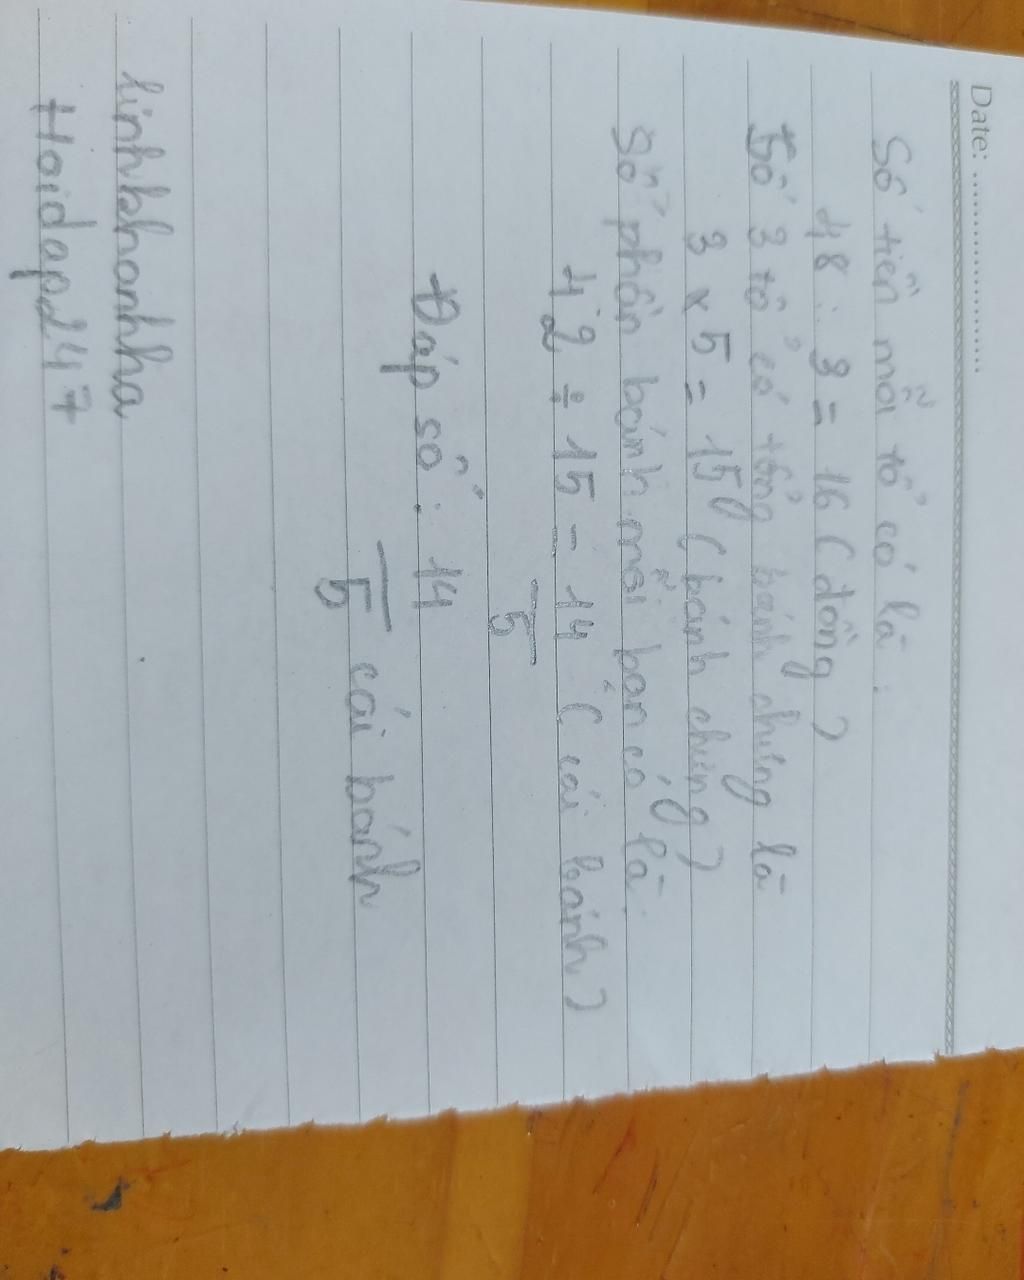 Date: ........................
Số tiền mỗi tổ có là :
48 : 3 = 16 ( đồng )
Số 3 tổ có tổng bánh chưng là
3 x 5 = 15 ( bánh chưng )
Số phần bánh mỗi bạn có là
42 ÷ 15 = 14/5 ( cái bánh )
Đáp số : 14/5 cái bánh
linhkhanhha
Hoidap247